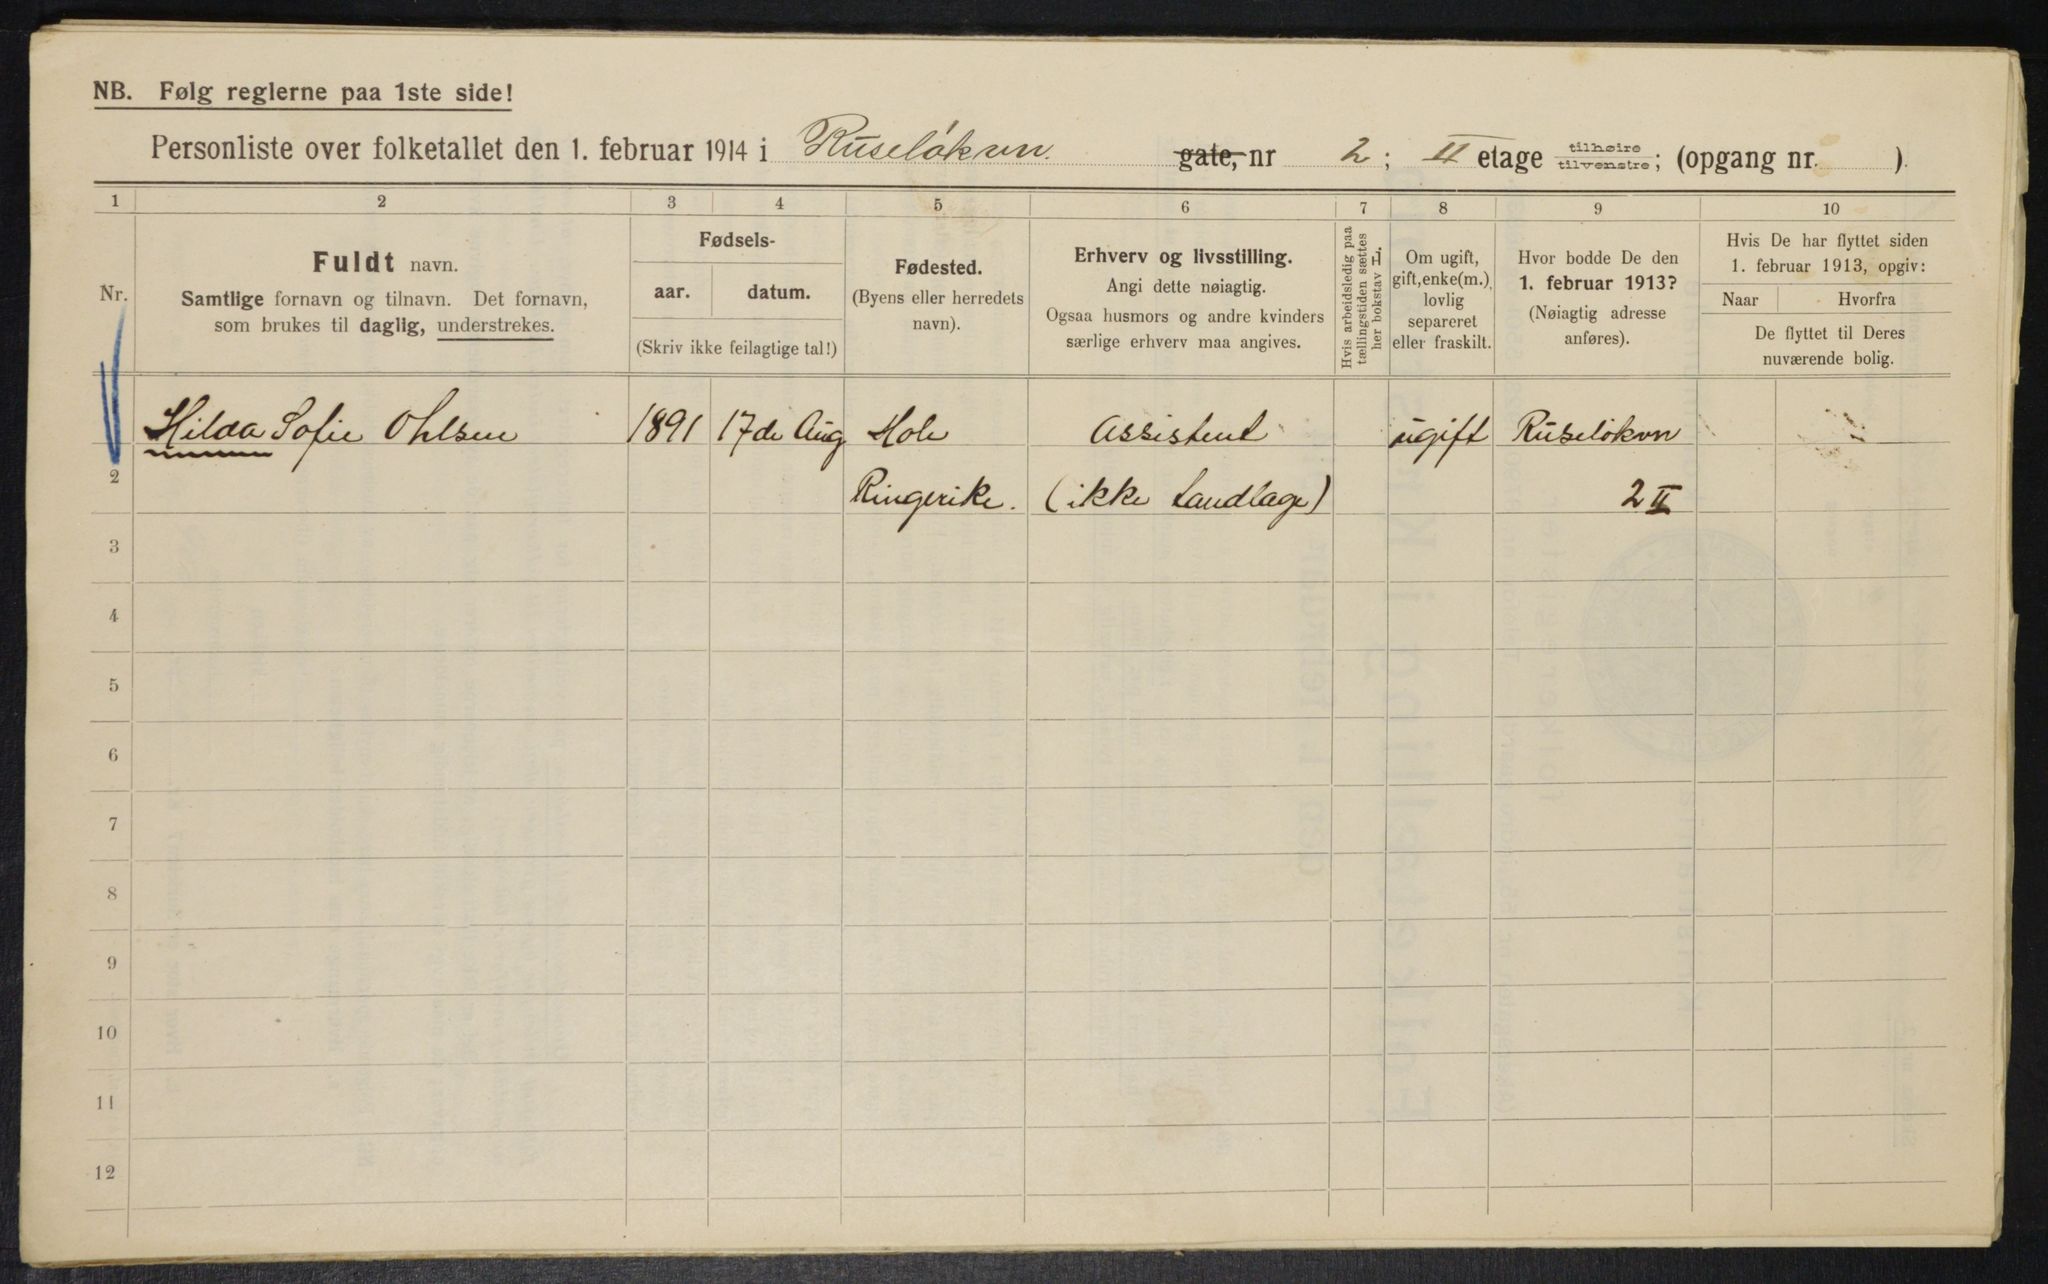 NB. Følg reglerne paa 1ste side!
Personliste over folketallet den 1. februar 1914 i Ruseløkvn. gate, nr 2; II etage tilhøire tilvenstre; (opgang nr. ).
1 2 3 4 5 6 7 8 9 10
Nr.
Fuldt navn.
Samtlige fornavn og tilnavn. Det fornavn,
som brukes til daglig, understrekes.
Fødsels-
aar. datum.
(Skriv ikke feilagtige tal!)
Fødested.
(Byens eller herredets
navn).
Erhverv og livsstilling.
Angi dette nøiagtig.
Ogsaa husmors og andre kvinders
særlige erhverv maa angives.
Hvis arbeidsledig paa
tællingstiden sættes
her bokstav L.
Om ugift,
gift, enke(m.),
lovlig
separeret
eller fraskilt.
Hvor bodde De den
1. februar 1913?
(Nøiagtig adresse
anføres).
Hvis De har flyttet siden
1. februar 1913, opgiv:
Naar Hvorfra
De flyttet til Deres
nuværende bolig.
Hilda Sofie Ohlsen 1891 17de Aug Hole Assistent ugift Ruseløkvn
2 Ringerike. (ikke Tandlæge) 2 II
3
4
5
6
7
8
9
10
11
12